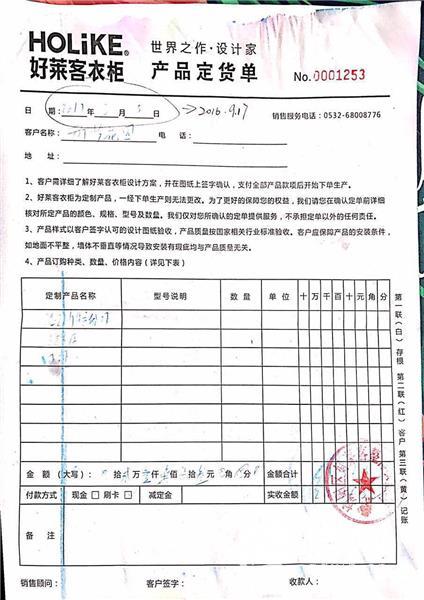 HOLiKE® 世界之作·设计家
好莱客衣柜 产品定货单 No.0001253
日 期: 年 月 日 → 2016.9.17 销售服务电话:0532-68008776
客户名称: 电 话:
地 址:
1、客户需详细了解好莱客衣柜设计方案,并在图纸上签字确认,支付全部产品款项后开始下单生产。
2、好莱客衣柜为定制产品,一经下单生产则无法更改。为了更好的保障您的权益,我们请您在确认定单前详细
核对所定产品的颜色、规格、型号及数量。我们仅对您所确认的定单提供服务,不承担定单以外的任何责任。
3、产品样式以客户签字认可的设计图纸验收,产品质量按国家相关行业标准验收。客户应保障产品的安装条件,
如地面不平整,墙体不垂直等情况导致安装有瑕疵均与产品质量无关。
4、产品订购种类、数量、价格内容(详见下表)
定制产品名称 型号说明 数量 单位 十 万 千 百 十 元 角 分
金 额 (大写): 拾 万 仟 佰 拾 元 角 分 金额合计
付款方式 现金 □ 刷卡 □ 减定金 实收金额
备 注
销售顾问: 客户签字: 收款人:
第一联(白)存根 第二联(红)客户 第三联(黄)记账